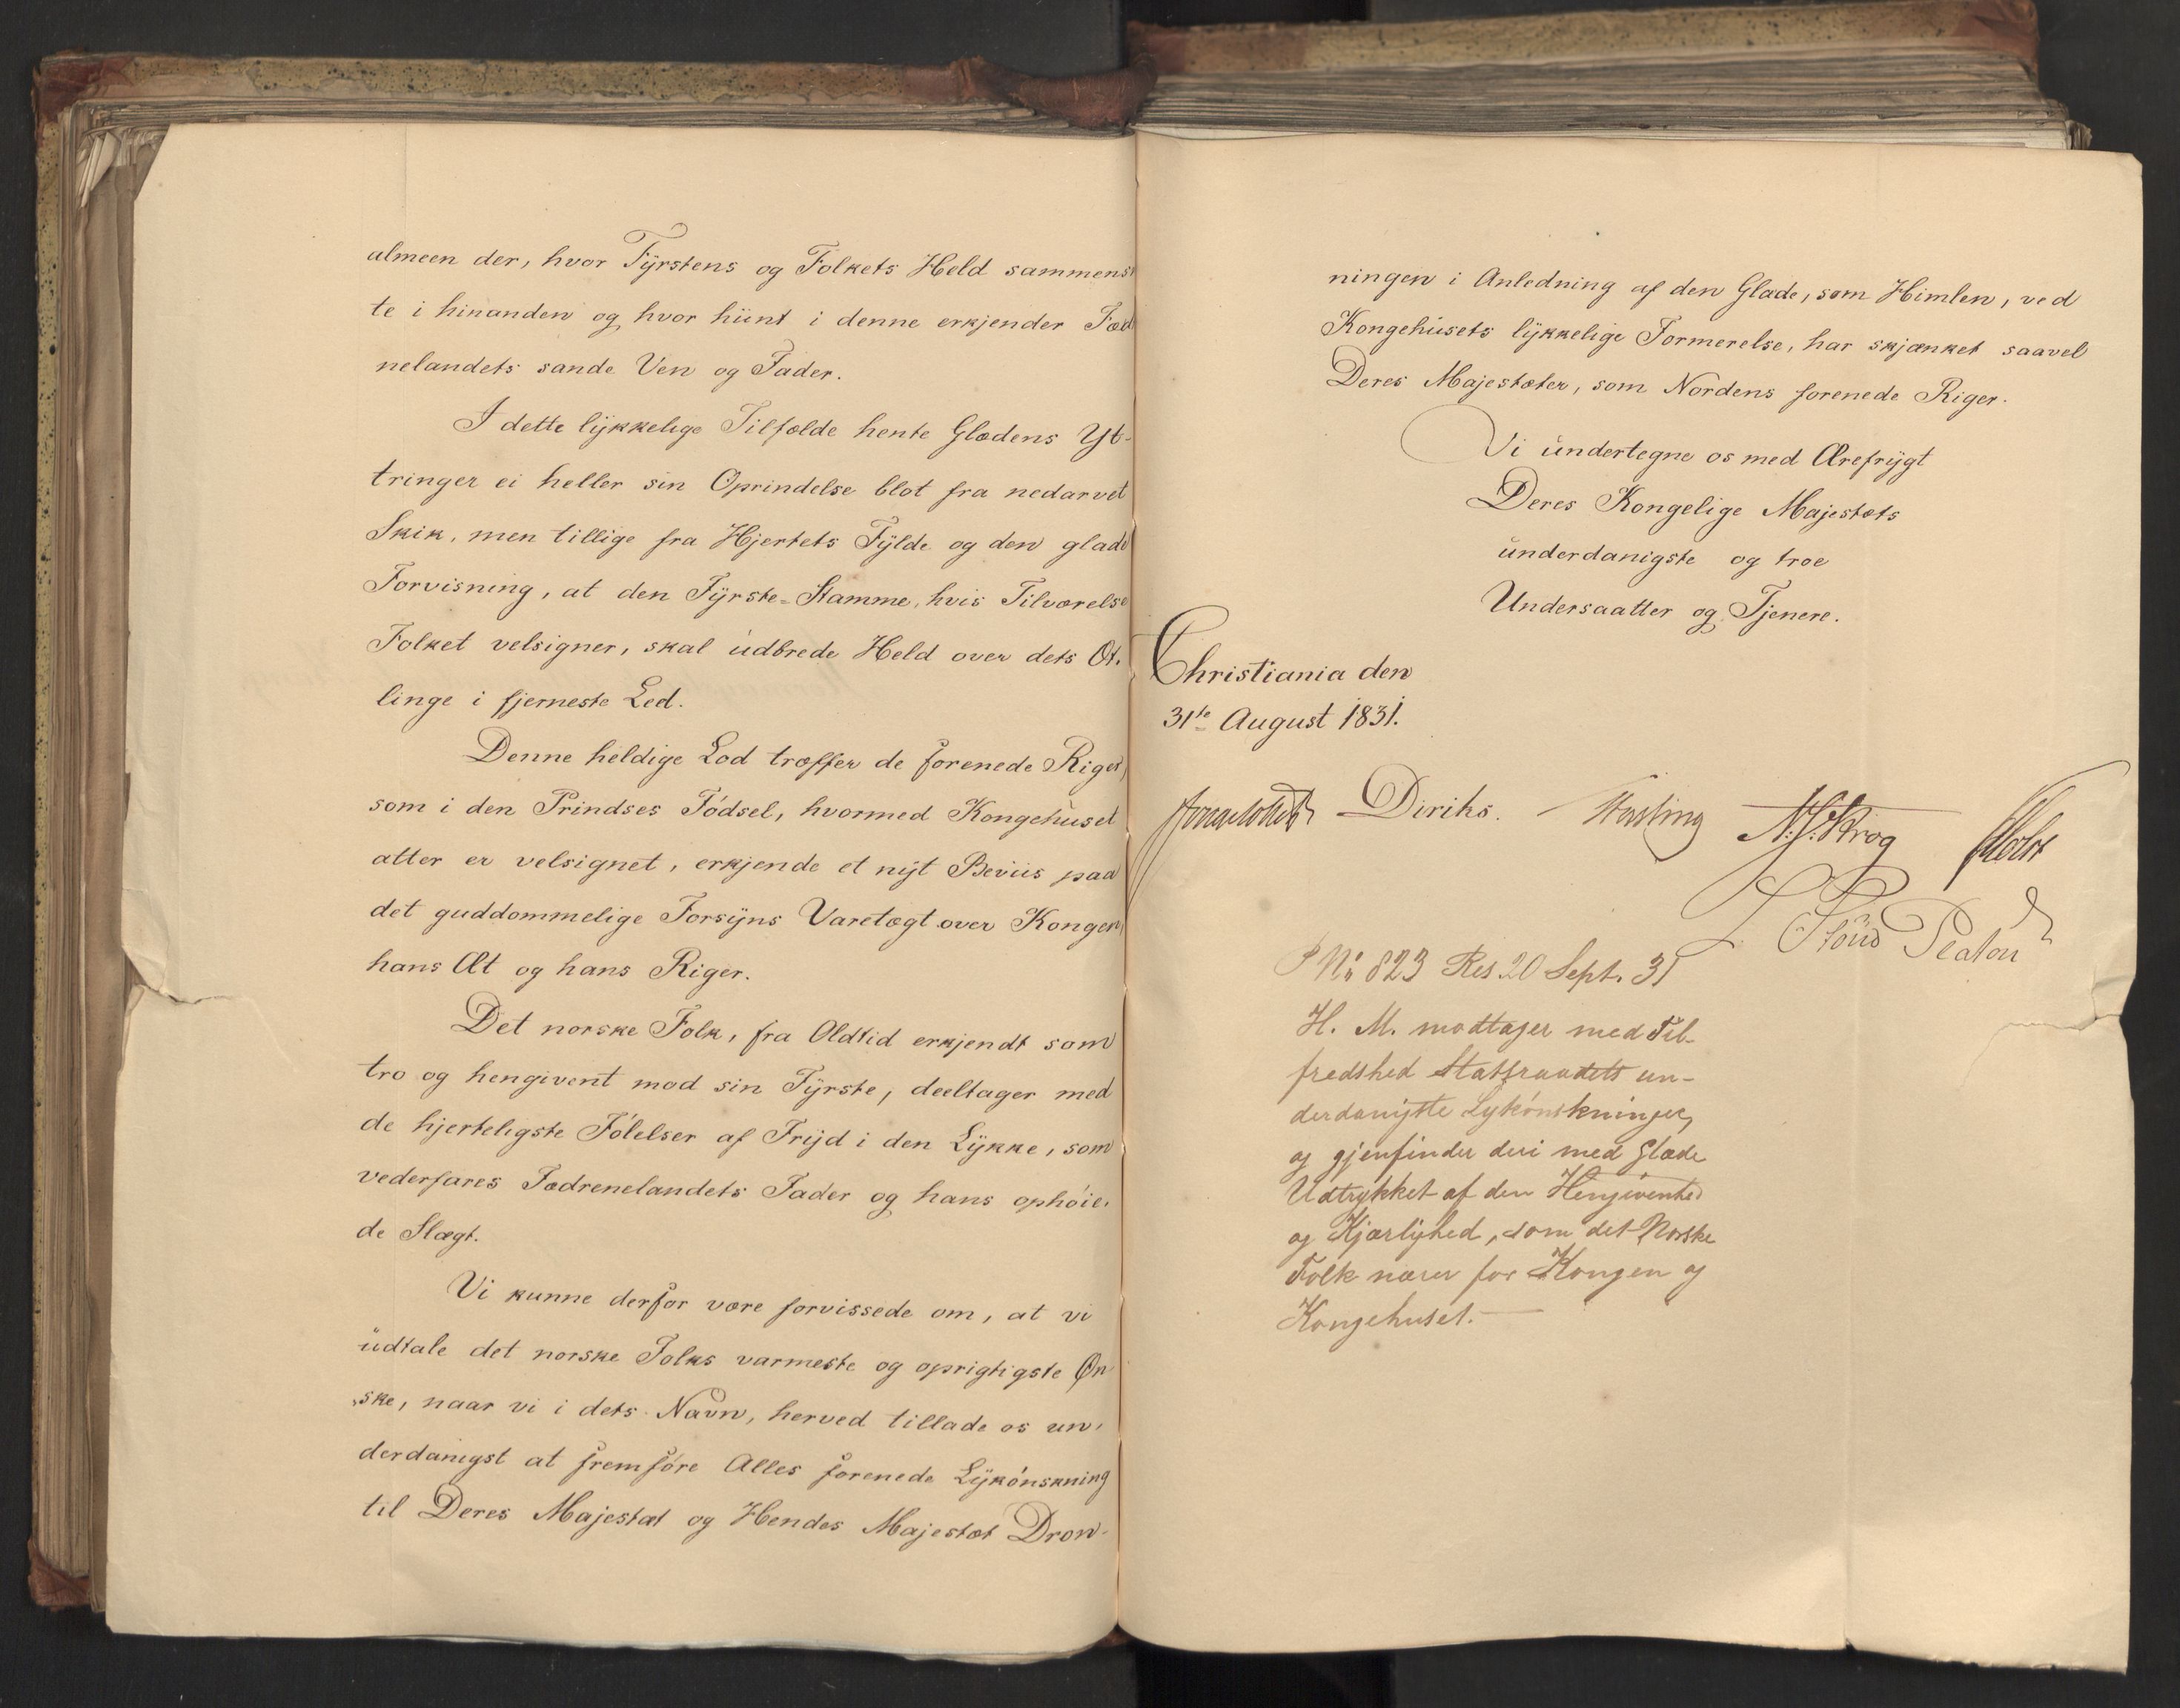 almeen der, hvor Fyrstens og Folkets Held sammens
te i hinanden og hvor hiint i denne erkjender Fæd
nelandets sande Ven og Fader.
I dette lykkelige Tilfælde hente Glædens Yt-
tringer ei heller sin Oprindelse blot fra nedarvet
Skik, men tillige fra Hjertets Fylde og den glade
Forvisning, at den Fyrste-Stamme, hvis Tilværelse
Folket velsigner, skal udbrede Held over dets Æt-
linge i fjerneste Led.
Denne heldige Lod træffer de forenede Riger,
som i den Prindses Fødsel, hvormed Kongehuset
atter er velsignet, erkjende et nyt Beviis paa
det guddommelige Forsyns Varetægt over Kongen,
hans Æt og hans Riger.
Det norske Folk, fra Oldtid erkjendt som
tro og hengivent mod sin Fyrste, deeltager med
de hjerteligste Følelser af Fryd i den Lykke, som
vederfares Fædrenelandets Fader og hans ophøie-
de Slægt.
Vi kunne derfor være forvissede om, at vi
udtale det norske Folks varmeste og oprigtigste Øn
ske, naar vi i dets Navn, herved tillade os un-
derdanigst at fremføre Alles forenede Lykønskning
til Deres Majestæt og Hendes Majestæt Dron-
ningen i Anledning af den Glæde, som Himlen, ved
Kongehusets lykkelige Formerelse, har skjænket saavel
Deres Majestæter, som Nordens forenede Riger.
Vi undertegne os med Ærefrygt
Deres Kongelige Majestæts
underdanigste og troe
Undersaatter og Tjenere.
Christiania den
31te August 1831.
Diriks. N. J. Krog
Platou
P No 823 Res 20 Sept. 31
H. M. modtager med Til-
fredshed Statsraadets un-
derdanigste Lykønskninger,
og gjenfinder deri med Glæde
Udtrykket af den Hengivenhed
og Kjærlighed, som det Norske
Folk nærer for Kongen og
Kongehuset.